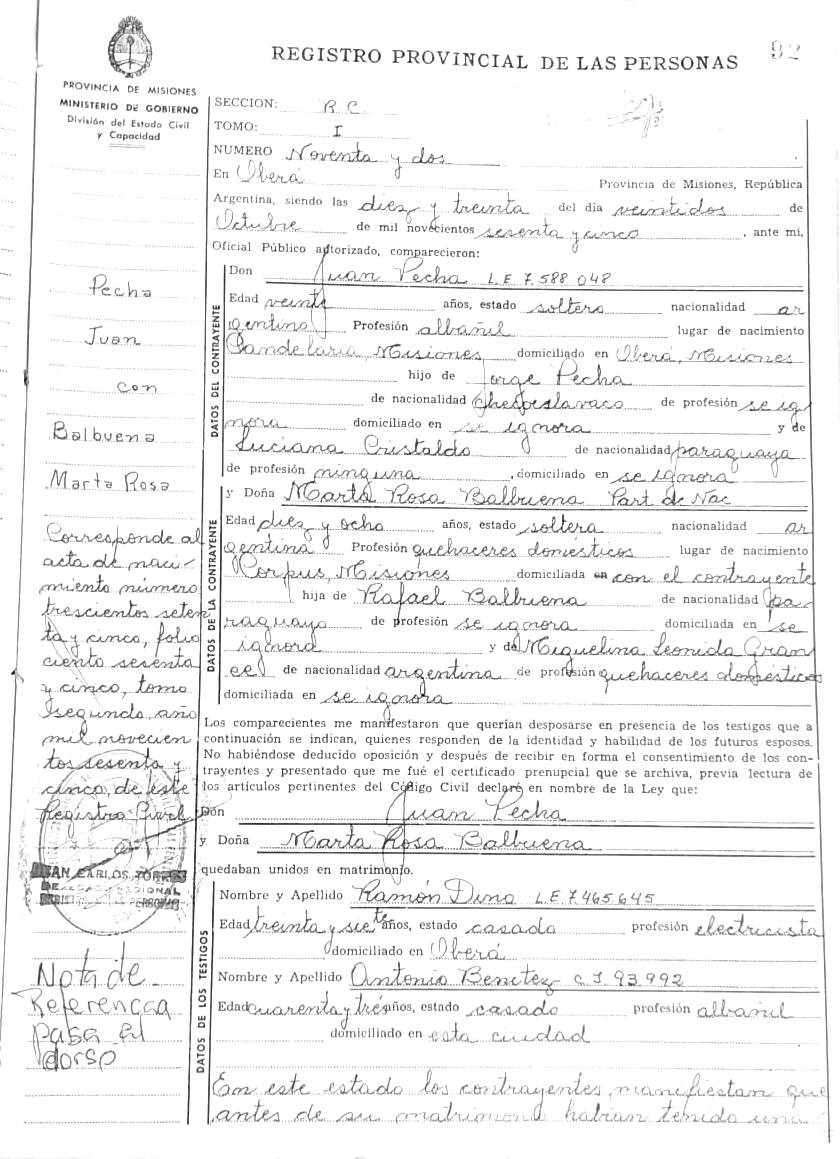 92
REGISTRO PROVINCIAL DE LAS PERSONAS
PROVINCIA DE MISIONES
MINISTERIO DE GOBIERNO
División del Estado Civil
y Capacidad
SECCION: R C
TOMO: I
NUMERO Noventa y dos
En Oberá Provincia de Misiones, República
Argentina, siendo las diez y treinta del día veintidos de
Octubre de mil novecientos sesenta y cinco, ante mi,
Oficial Público autorizado, comparecieron:
DATOS DEL CONTRAYENTE
Don Juan Pecha L.E 7.588 048
Edad veinte años, estado soltero nacionalidad ar
gentino Profesión albañil lugar de nacimiento
Candelaria, Misiones domiciliado en Oberá, Misiones
hijo de Jorge Pecha
de nacionalidad de profesión se ig
nora domiciliado en se ignora y de
Luciana Cristaldo de nacionalidad paraguaya
de profesión ninguna, domiciliado en se ignora
DATOS DE LA CONTRAYENTE
y Doña Marta Rosa Balbuena Part de Nac
Edad diez y ocho años, estado soltera nacionalidad ar
gentina Profesión quehaceres domésticos lugar de nacimiento
Corpus, Misiones domiciliada en con el contrayente
hija de Rafael Balbuena de nacionalidad pa
raguayo de profesión se ignora domiciliada en se
ignora y de Miguelina Leonida Gran
ce de nacionalidad argentina de profesión quehaceres domésticos
domiciliada en se ignora
Los comparecientes me manifestaron que querían desposarse en presencia de los testigos que a
continuación se indican, quienes responden de la identidad y habilidad de los futuros esposos.
No habiéndose deducido oposición y después de recibir en forma el consentimiento de los con-
trayentes y presentado que me fué el certificado prenupcial que se archiva, previa lectura de
los artículos pertinentes del Código Civil declaré en nombre de la Ley que:
Don Juan Pecha
y Doña Marta Rosa Balbuena
quedaban unidos en matrimonio.
DATOS DE LOS TESTIGOS
Nombre y Apellido Ramón Dino L.E. 7.465.645
Edad treinta y siete años, estado casado profesión electricista
domiciliado en Oberá
Nombre y Apellido Antonio Benitez c.I. 93.992
Edad cuarenta y tres años, estado casado profesión albañil
domiciliado en esta ciudad
En este estado los contrayentes manifiestan que
antes de su matrimonio habian tenido una
Pecha
Juan
con
Balbuena
Marta Rosa
Corresponde al
acta de naci-
miento número
trescientos seten
ta y cinco, folio
ciento sesenta
y cinco, tomo
segundo, año
mil novecien
tos sesenta y
cinco, de este
Registro Civil
JUAN CARLOS TORRES
Nota de
Referencia
pasa al
dorso